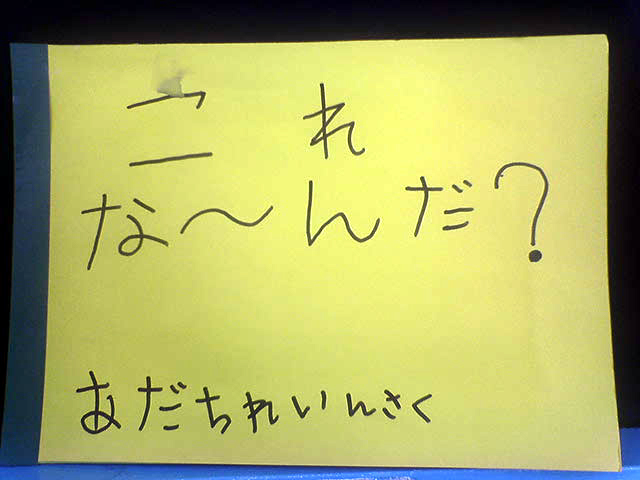 これ
な〜んだ?
あだちれいんさく